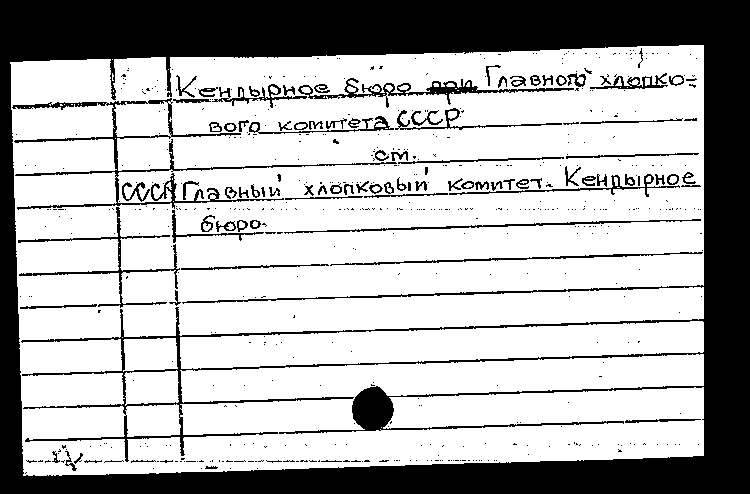 Кендырное бюро при Главного хлопко-
вого комитета СССР
см.
СССР Главный хлопковый комитет. Кендырное
бюро.